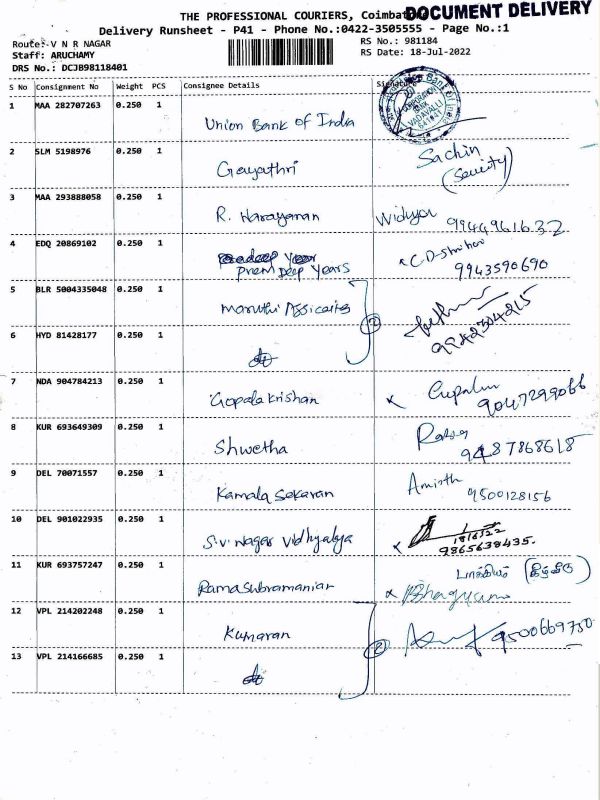 THE PROFESSIONAL COURIERS, Coimbat
DOCUMENT DELIVERY
Delivery Runsheet - P41 - Phone No.:0422-3505555 - Page No.:1
Route:- V N R NAGAR
RS No.: 981184
Staff: ARUCHAMY
RS Date: 18-Jul-2022
DRS No.: DCJB98118401
S No Consignment No Weight PCS Consignee Details
1 MAA 282707263 0.250 1
Union Bank of India
VADAVALLI
641041
2 SLM 5198976 0.250 1
Gayathri
Sachin
(Security)
3 MAA 293888058 0.250 1
R. Narayanan
Widhya 9944961632
4 EDQ 20869102 0.250 1
prem Deep Years
9943590690
5 BLR 5004335048 0.250 1
maruthi Assicaites
9942304215
6 HYD 81428177 0.250 1
7 NDA 904784213 0.250 1
Gopala Krishan
9047299066
8 KUR 693649309 0.250 1
Shwetha
9487868618
9 DEL 70071557 0.250 1
Kamala Sekaran
Amirth
9500128156
10 DEL 901022935 0.250 1
S.V. nagar Vidhyalya
9865638435.
11 KUR 693757247 0.250 1
Ramasubramanian
பாக்கியம்
12 VPL 214202248 0.250 1
Kumaran
9500669750
13 VPL 214166685 0.250 1